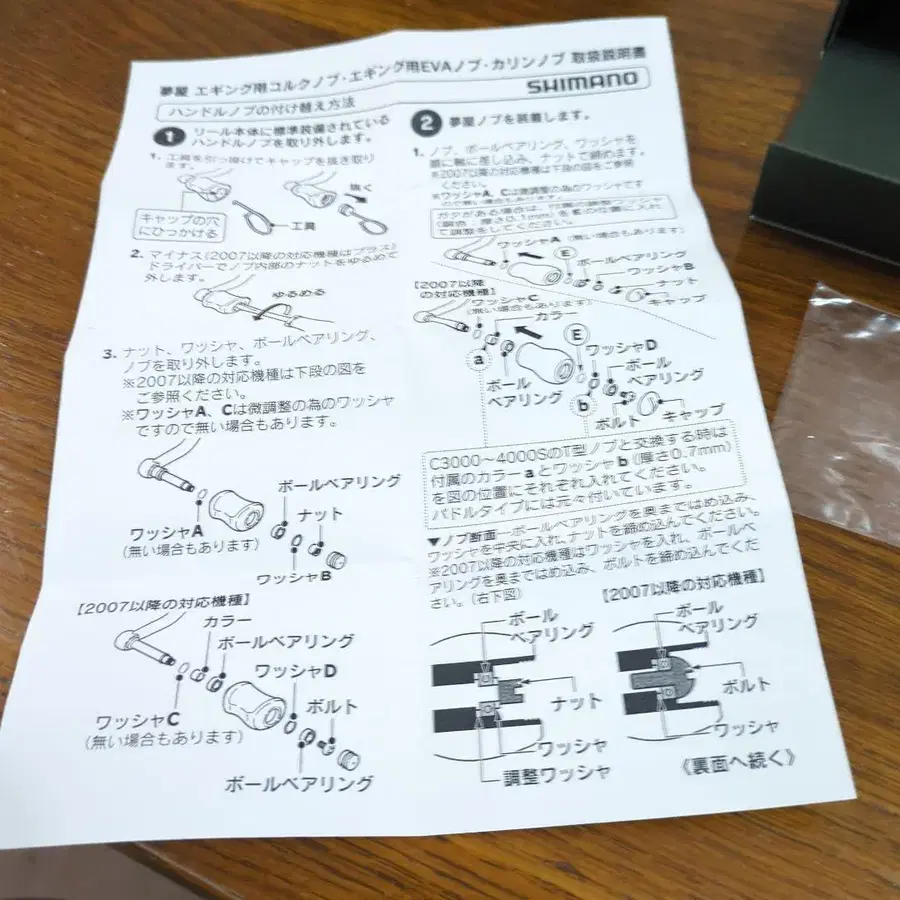 夢屋 エギング用コルクノブ・エギング用EVAノブ・カリンノブ 取扱説明書
SHIMANO
ハンドルノブの付け替え方法
1 リール本体に標準装備されている
ハンドルノブを取り外します。
1. 工具を引っ掛けてキャップを抜き取り
ます。
抜く
キャップの穴
にひっかける
工具
2. マイナス(2007以降の対応機種はプラス)
ドライバーでノブ内部のナットをゆるめて
外します。
ゆるめる
3. ナット、ワッシャ、ボールベアリング、
ノブを取り外します。
※2007以降の対応機種は下段の図を
ご参照ください。
※ワッシャA、Cは微調整の為のワッシャ
ですので無い場合もあります。
ボールベアリング
ナット
ワッシャA
(無い場合もあります)
ワッシャB
【2007以降の対応機種】
カラー
ボールベアリング
ワッシャD
ボルト
ワッシャC
(無い場合もあります)
ボールベアリング
2 夢屋ノブを装着します。
1. ノブ、ボールベアリング、ワッシャを
順に軸に差し込み、ナットで締めます。
※2007以降の対応機種は下段の図をご参照
ください。
※ワッシャA、Cは微調整の為のワッシャです
ので無い場合もあります。
ガタがある場合は、付属の調整ワッシャ
(銅色:厚さ0.1mm)をEの位置に入れ
て調整をしてください。
ワッシャA (無い場合もあります)
E
ボールベアリング
ワッシャB
ナット
キャップ
【2007以降
の対応機種】
ワッシャC
(無い場合もあります)
カラー
E
ワッシャD
a
ボール
ベアリング
ボール
ベアリング
b
ボルト
キャップ
C3000～4000SのT型ノブと交換する時は
付属のカラーaとワッシャb(厚さ0.7mm)
を図の位置にそれぞれ入れてください。
パドルタイプには元々付いています。
▼ノブ断面…ボールベアリングを奥まではめ込み、
ワッシャを中央に入れ、ナットを締め込んでください。
※2007以降の対応機種はワッシャを入れ、ボールベ
アリングを奥まではめ込み、ボルトを締め込んでくだ
さい。(右下図)
【2007以降の対応機種】
ボール
ベアリング
ナット
ワッシャ
調整ワッシャ
ボール
ベアリング
ボルト
ワッシャ
《裏面へ続く》